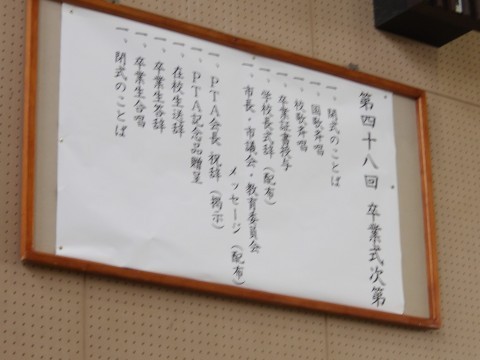 第四十八回 卒業式次第
一、開式のことば
一、国歌斉唱
一、校歌斉唱
一、卒業証書授与
一、学校長式辞(配布)
一、市長・市議会・教育委員会
メッセージ(配布)
一、PTA会長 祝辞(掲示)
一、PTA記念品贈呈
一、在校生送辞
一、卒業生答辞
一、卒業生合唱
一、閉式のことば